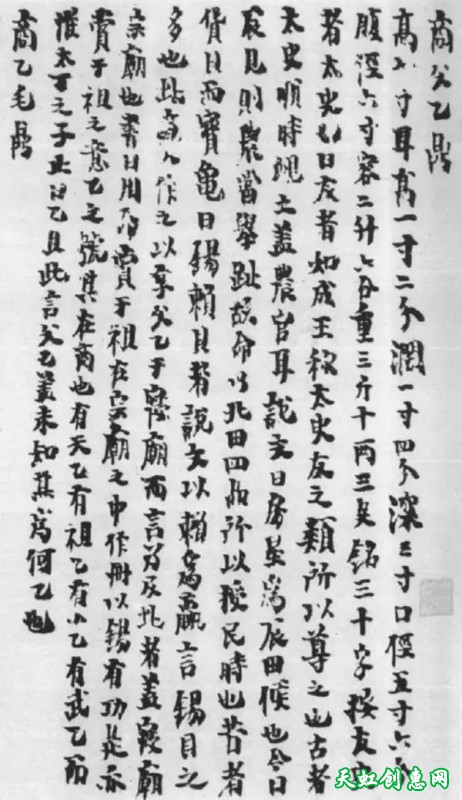 商父乙鼎
高六寸耳高一寸二分濶一寸四分深三寸口徑五寸六分
腹徑六寸容二升六合重三斤十兩三足銘三十字按友史
者太史也曰友者如成王稱太史友之類所以尊之也古者
太史順時覛土蓋農官耳說文曰房星爲辰田候也今曰
辰見則農當舉趾故命以北田四品所以授民時也昔者
貨貝而寶龜曰錫賴貝者說文以賴爲贏言錫貝之
多也此商人作之以享父乙于寢廟而言及此者蓋寢廟
宗廟也書曰用命賞于祖在宗廟之中作冊以錫有功是亦
賞于祖之意乙之號其在商也有天乙有祖乙有小乙有武乙而
惟太丁之子止曰乙且此言父乙蓋未知其爲何乙也
商乙毛鼎
天虹创意网